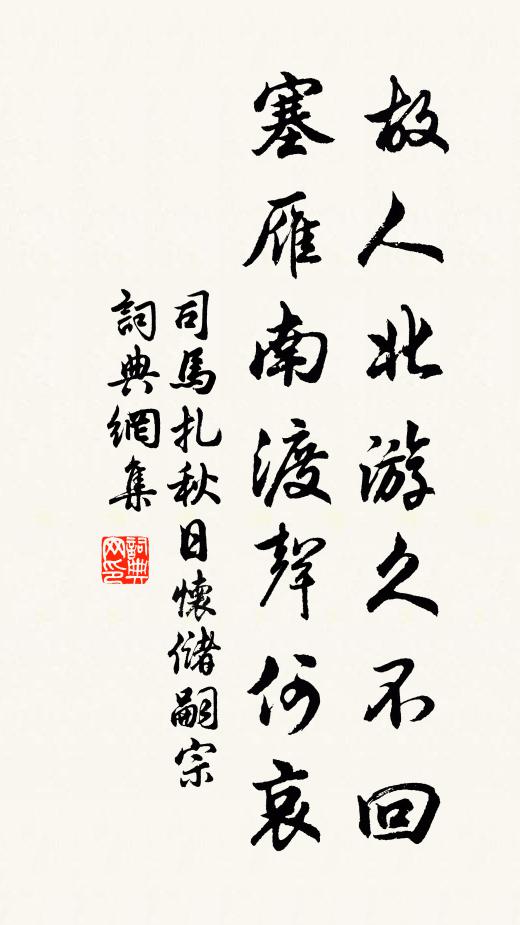 故人北游久不回
塞雁南渡聲何哀
司馬扎秋日懷儲嗣宗
詞典網集
詞典网印